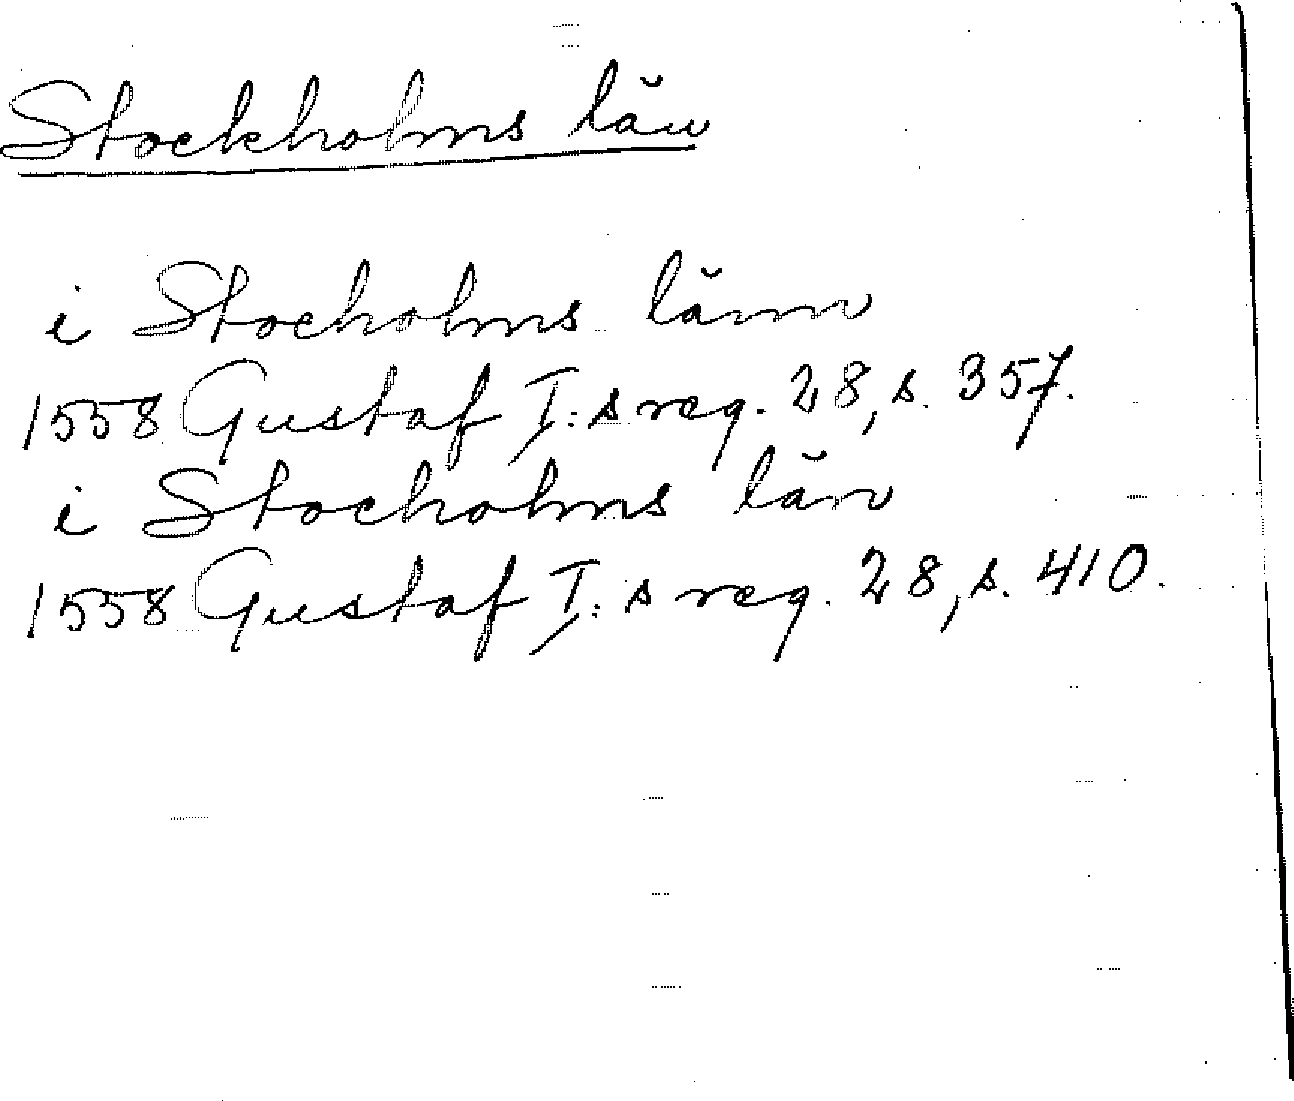 Stockholms län
i Stocholms länn
1558 Gustaf I:s reg. 28, s. 357.
i Stocholms län
1558 Gustaf I:s reg. 28, s. 410.